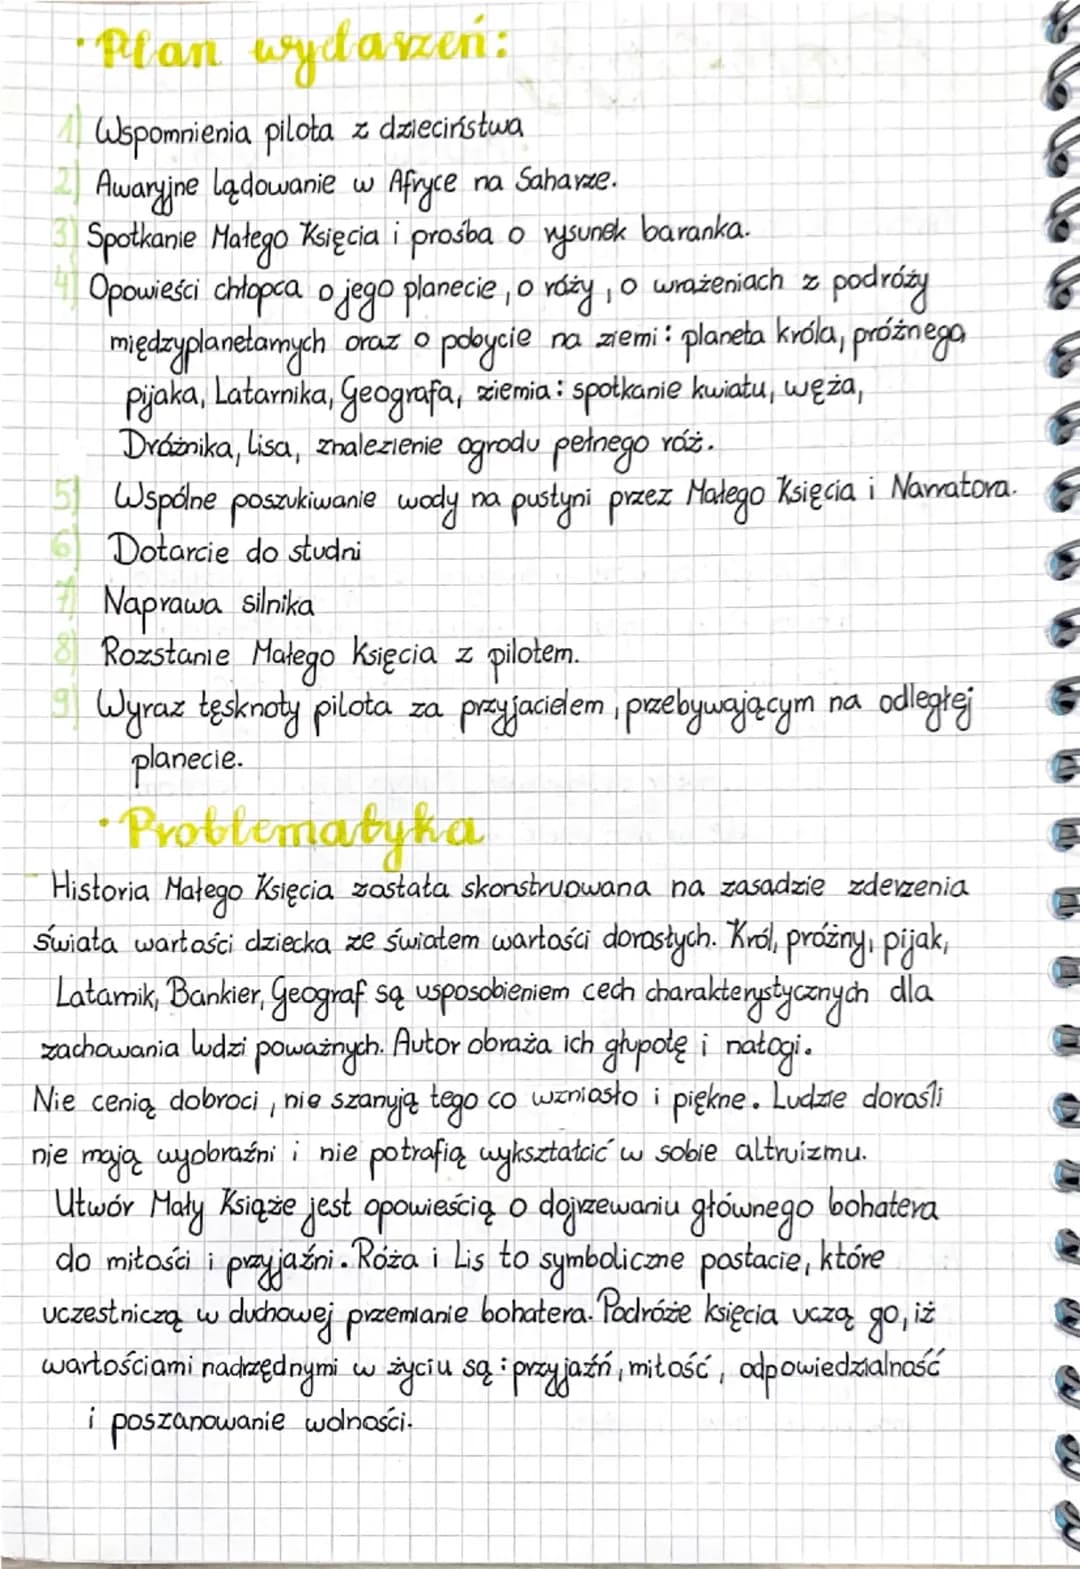 • Plan wydarzeń:
1) Wspomnienia pilota z dzieciństwa
2) Awaryjne lądowanie w Afryce na Saharze.
3) Spotkanie Małego Księcia i prośba o rysunek baranka.
4) Opowieści chłopca o jego planecie, o róży, o wrażeniach z podróży
międzyplanetarnych oraz o pobycie na ziemi: planeta króla, próżnego,
pijaka, Latarnika, Geografa, ziemia: spotkanie kwiatu, węża,
Dróżnika, lisa, znalezienie ogrodu pełnego róż.
5) Wspólne poszukiwanie wody na pustyni przez Małego Księcia i Narratora.
6) Dotarcie do studni
7) Naprawa silnika
8) Rozstanie Małego Księcia z pilotem.
9) Wyraz tęsknoty pilota za przyjacielem, przebywającym na odległej
planecie.
• Problematyka
- Historia Małego Księcia została skonstruowana na zasadzie zderzenia
świata wartości dziecka ze światem wartości dorosłych. Król, próżny, pijak,
Latarnik, Bankier, Geograf są usposobieniem cech charakterystycznych dla
zachowania ludzi poważnych. Autor obraża ich głupotę i nałogi.
Nie cenią dobroci, nie szanują tego co wzniosło i piękne. Ludzie dorośli
nie mają wyobraźni i nie potrafią wykształcić w sobie altruizmu.
Utwór Mały Książe jest opowieścią o dojrzewaniu głównego bohatera
do miłości i przyjaźni. Róża i Lis to symboliczne postacie, które
uczestniczą w duchowej przemianie bohatera. Podróże księcia uczą go, iż
wartościami nadrzędnymi w życiu są: przyjaźń, miłość, odpowiedzialność
i poszanowanie wolności.